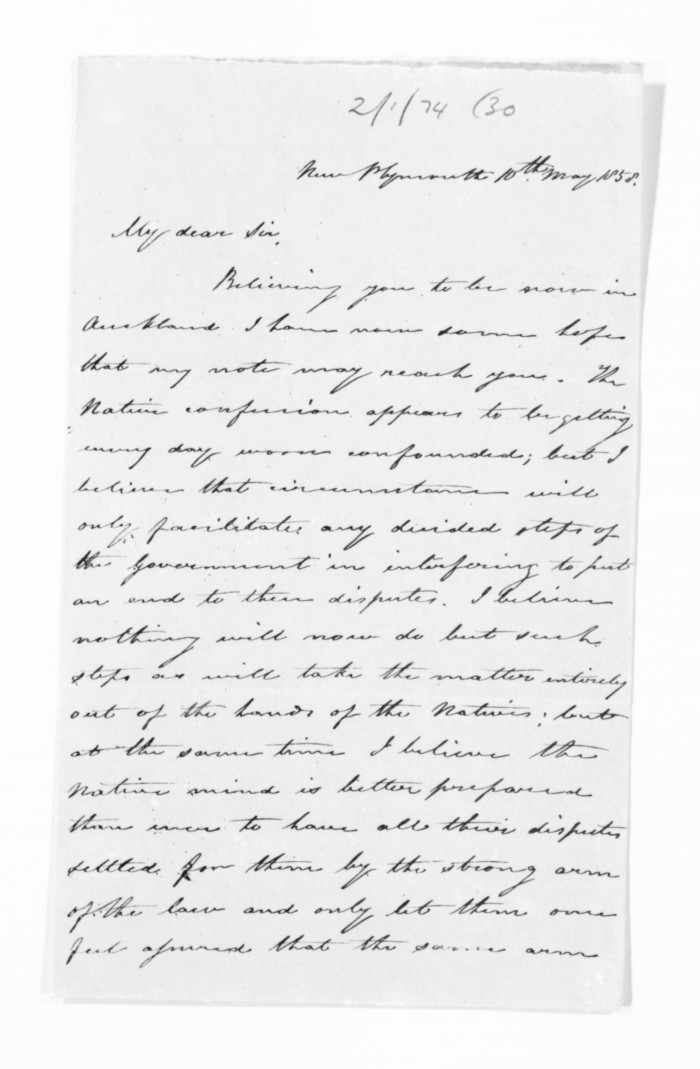 2/1/74 (30
New Plymouth 10th May 1858.
My dear Sir,
Believing you to be now in
Auckland I have now some hope
that my note may reach you. The
Native confusion appears to be getting
every day worse confounded; but I
believe that circumstance will
only facilitate any decided steps of
the Government in interfering to put
an end to their disputes. I believe
nothing will now do but such
steps as will take the matter entirely
out of the hands of the Natives; but
at the same time I believe the
Native mind is better prepared
than ever to have all their disputes
settled for them by the strong arm
of the law and only let them once
feel assured that the same arm